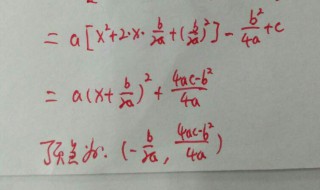 = a[x²+2·x·b/2a+(b/2a)²]-b²/4a+c
= a(x+b/2a)²+(4ac-b²)/4a
顶点为. (-b/2a, (4ac-b²)/4a)